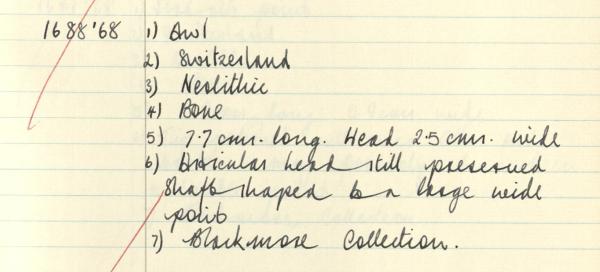 1688'68 1) Awl
2) Switzerland
3) Neolithic
4) Bone
5) 7.7 cms. long. Head 2.5 cms. wide
6) Articular head still preserved
Shaft shaped to a large wide
point
7) Blackmore Collection.